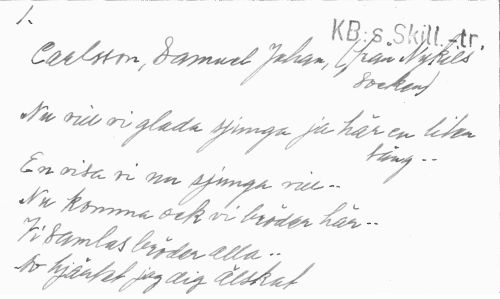 1.
KB:s Skill.-tr.
Carlsson, Samuel Johan, (från Nykils
Socken)
Nu vill vi glada sjunga ja här en liten
sång..
En visa vi nu sjunga vill..
Nu komma ock vi bröder här..
Vi samlas bröder alla..
Av hjärtat jag dig älskat